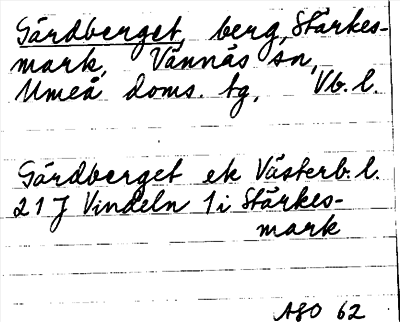 Gärdberget, berg, Stärkes-
mark, Vännäs sn,
Umeå doms. tg, Vb. l.
Gärdberget ek Västerb. l.
21 J Vindeln 1i Stärkes-
mark
ASO 62